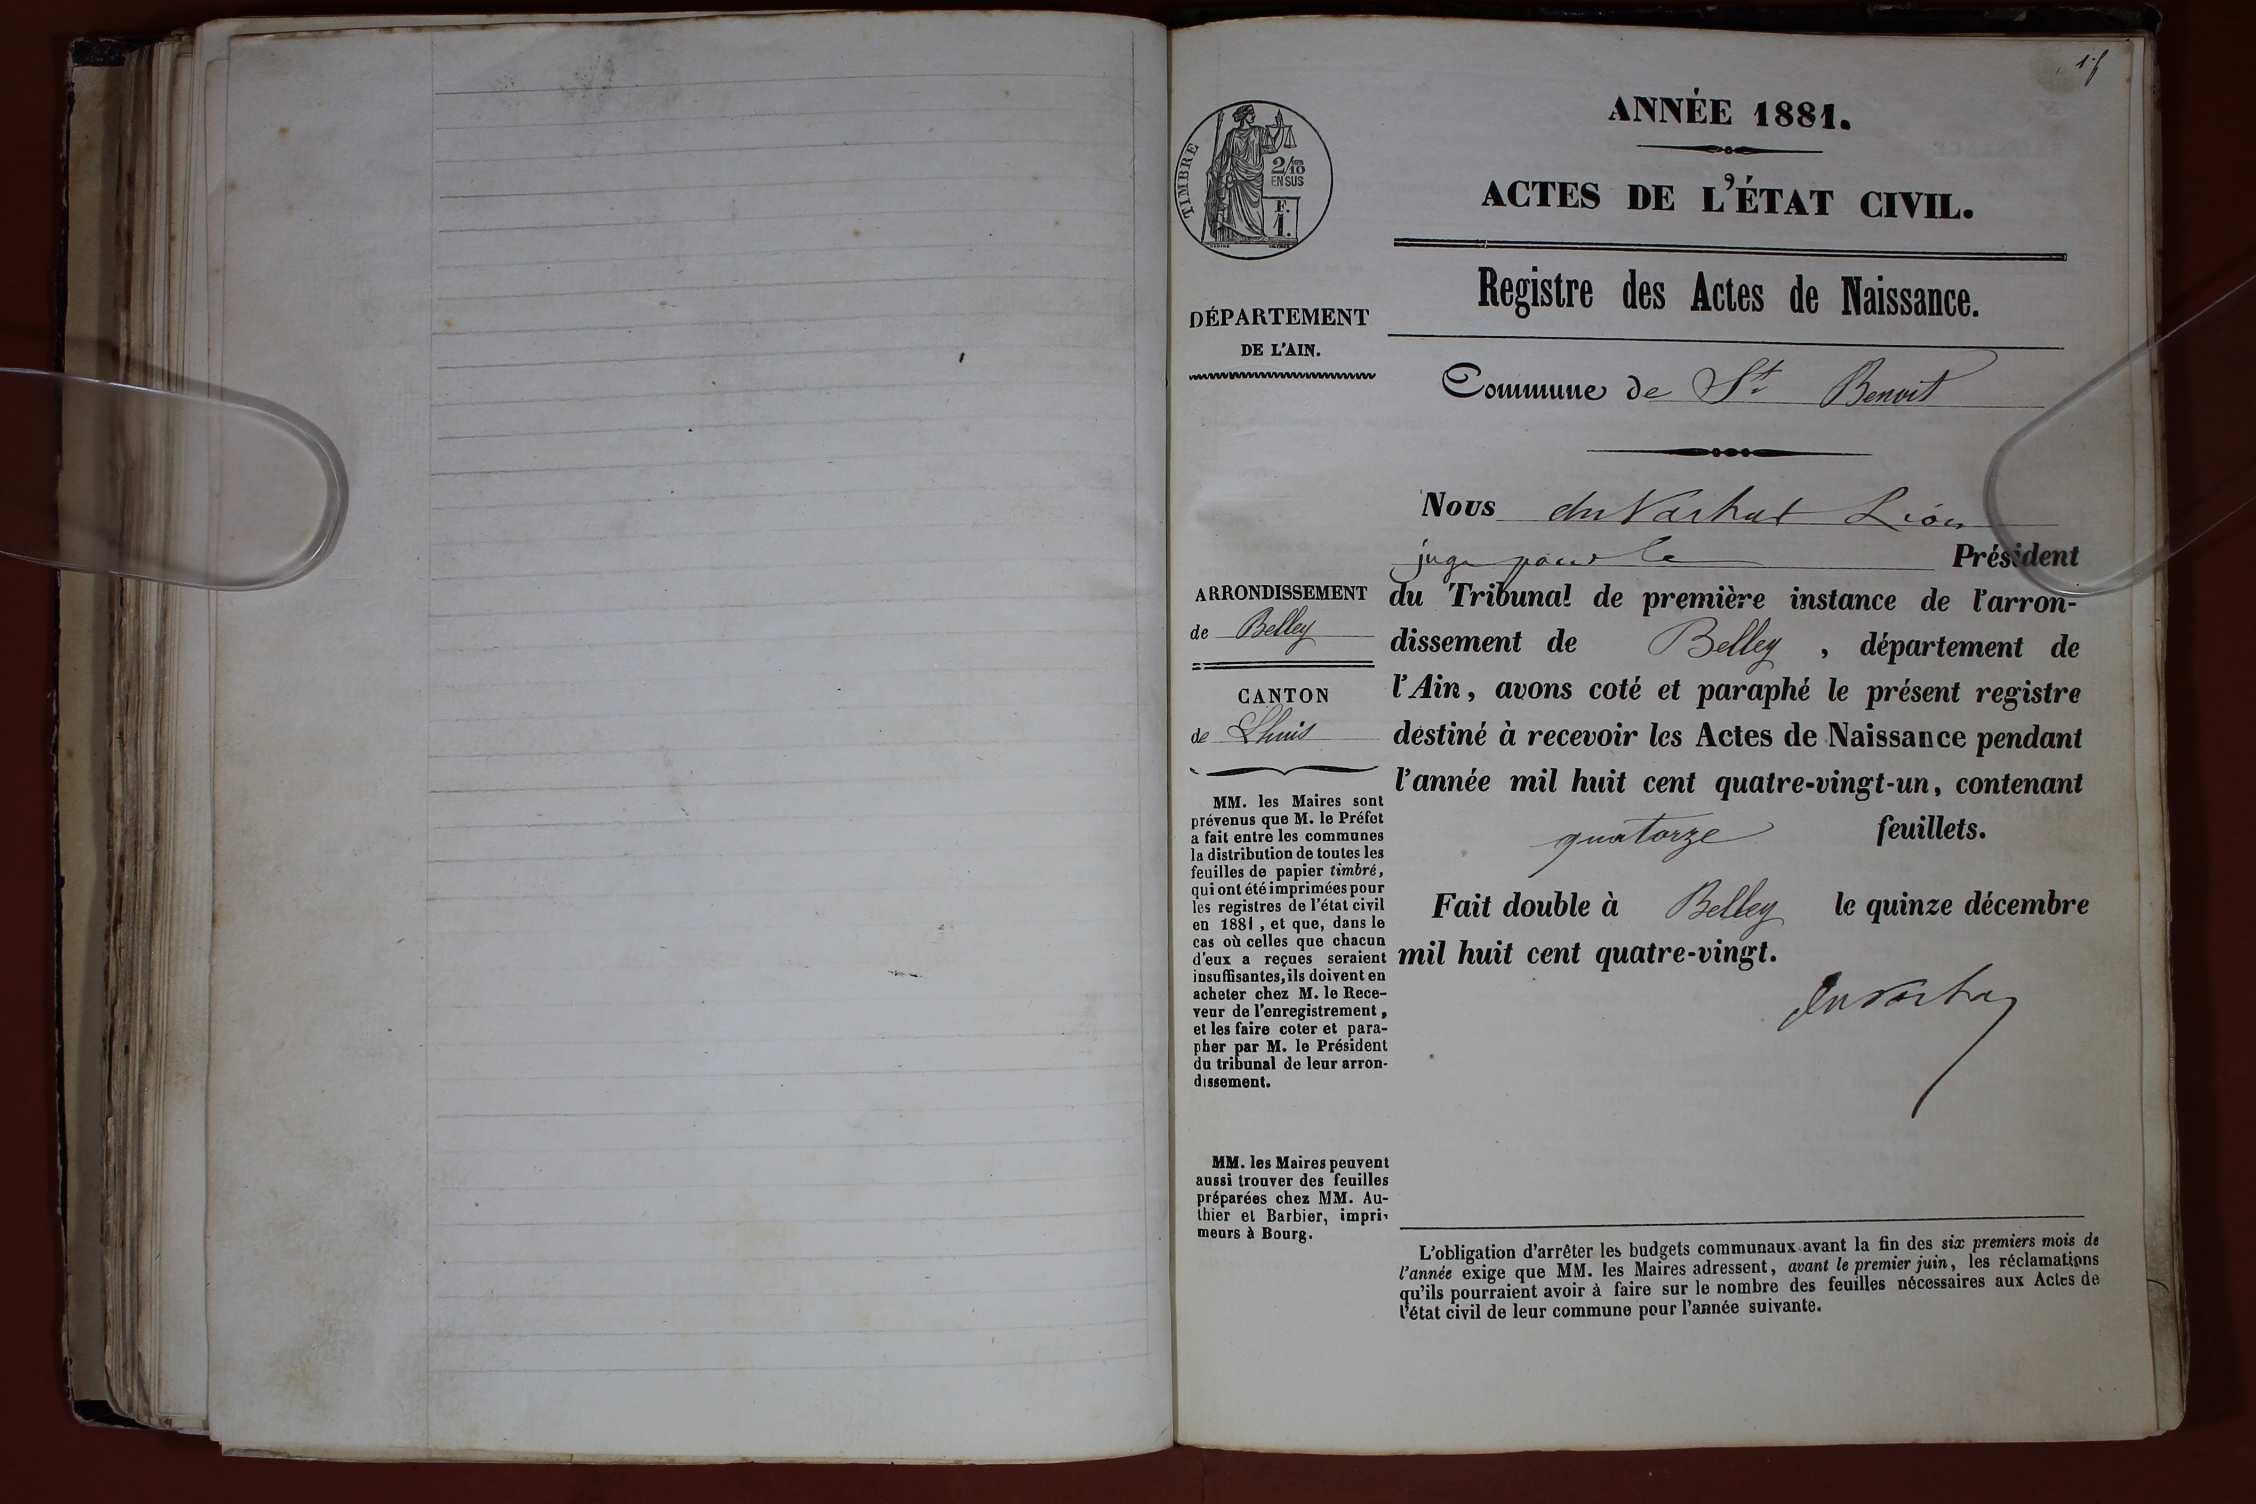 1 f
ANNÉE 1881.
ACTES DE L'ÉTAT CIVIL.
TIMBRE
2/10
EN SUS
F.
1.
Registre des Actes de Naissance.
DÉPARTEMENT
DE L'AIN.
Commune de St Benoit
Nous du Vachat Léon
juge pour le Président
du Tribunal de première instance de l'arron-
dissement de Belley, département de
l'Ain, avons coté et paraphé le présent registre
destiné à recevoir les Actes de Naissance pendant
l'année mil huit cent quatre-vingt-un, contenant
quatorze feuillets.
Fait double à Belley le quinze décembre
mil huit cent quatre-vingt.
ARRONDISSEMENT
de Belley
CANTON
de Lhuis
MM. les Maires sont
prévenus que M. le Préfet
a fait entre les communes
la distribution de toutes les
feuilles de papier timbré,
qui ont été imprimées pour
les registres de l'état civil
en 1881, et que, dans le
cas où celles que chacun
d'eux a reçues seraient
insuffisantes, ils doivent en
acheter chez M. le Rece-
veur de l'enregistrement,
et les faire coter et para-
pher par M. le Président
du tribunal de leur arron-
dissement.
MM. les Maires peuvent
aussi trouver des feuilles
préparées chez MM. Au-
thier et Barbier, impri-
meurs à Bourg.
L'obligation d'arrêter les budgets communaux avant la fin des six premiers mois de
l'année exige que MM. les Maires adressent, avant le premier juin, les réclamations
qu'ils pourraient avoir à faire sur le nombre des feuilles nécessaires aux Actes de
l'état civil de leur commune pour l'année suivante.